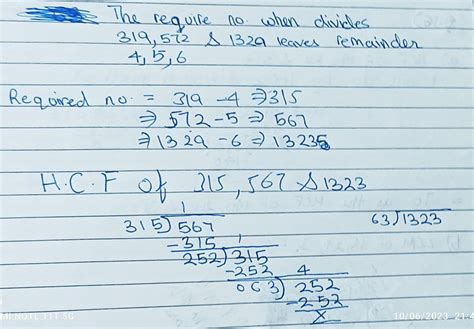 The require no. when divides
319, 572 & 1329 leaves remainder
4, 5, 6
Required no. = 319 - 4 ⇒ 315
⇒ 572 - 5 ⇒ 567
⇒ 1329 - 6 ⇒ 1323
H.C.F of 315, 567 & 1323
1
315) 567
63) 1323
- 315
1
252) 315
- 252
4
063) 252
- 252
x
10/06/2023 21:4